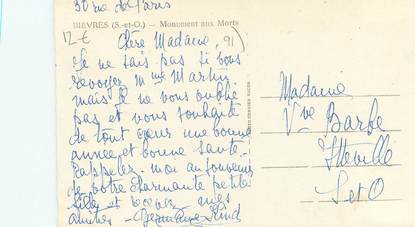 30 rue de Paris
BIEVRES (S.-et-O.) — Monument aux Morts
12 €
Chère Madame, 91
Je ne sais pas si vous
revoyez Mme Martin
mais je ne vous oublie
pas et vous souhaite
de tout cœur une bonne
année et bonne santé -
Rappelez-moi au souvenir
de votre charmante petite
fille et recevez mes
amitiés -
Madame
Vve Barbe
Itteville
S et O